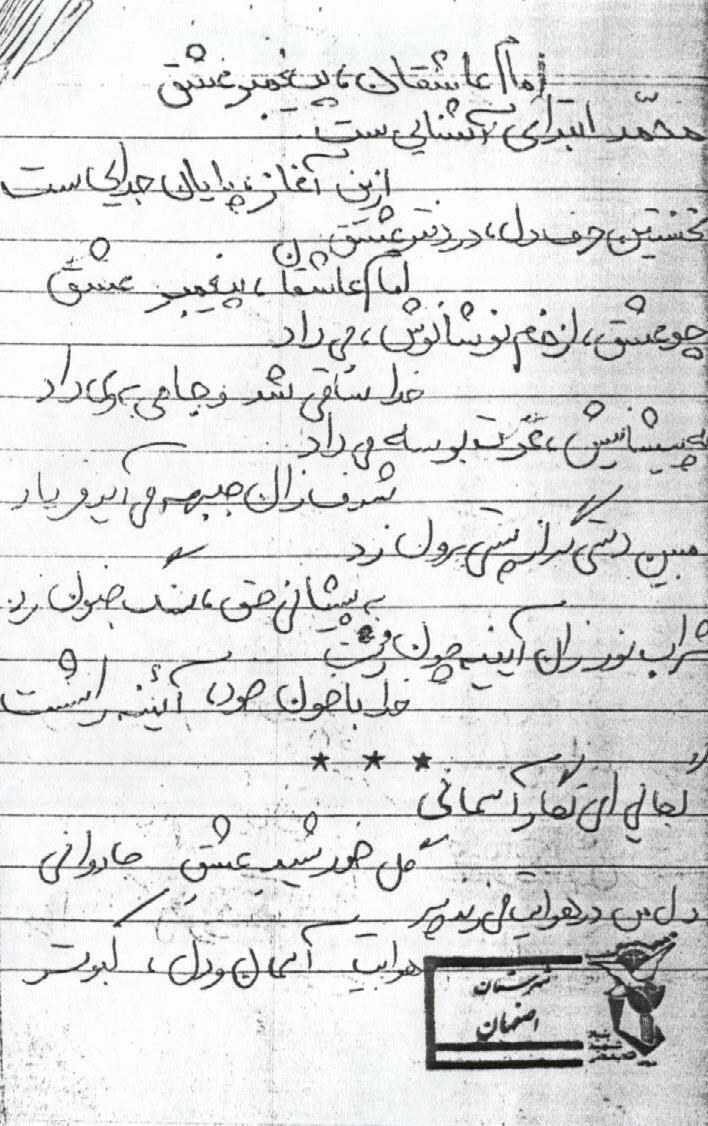 امام عاشقان، پیغمبر عشق
محمّد ابتدای آشنایی ست
ازین آغاز، پایان جدایی ست
نخستین حرف دل، در دفتر عشق
امام عاشقان، پیغمبر عشق
چو عشق، از خم نوشانوش، می داد
خدا ساقی شد و جامی به وی داد
به پیشانیش، عزت بوسه می داد
شرف زان جبهه می آید فریاد
مبین دستی گر از پستی برون زد
به پیشانی حق، سنگ جنون زد
شراب نور زان آیینه چون
خدا با خون خود، آئینه را شست
★ ★ ★
کجایی ای نگار آسمانی
گل خورشید عشق جاودانی
دل من در هوایت می زند پر
هوایت آسمان و دل، کبوتر
شهرستان
اصفهان